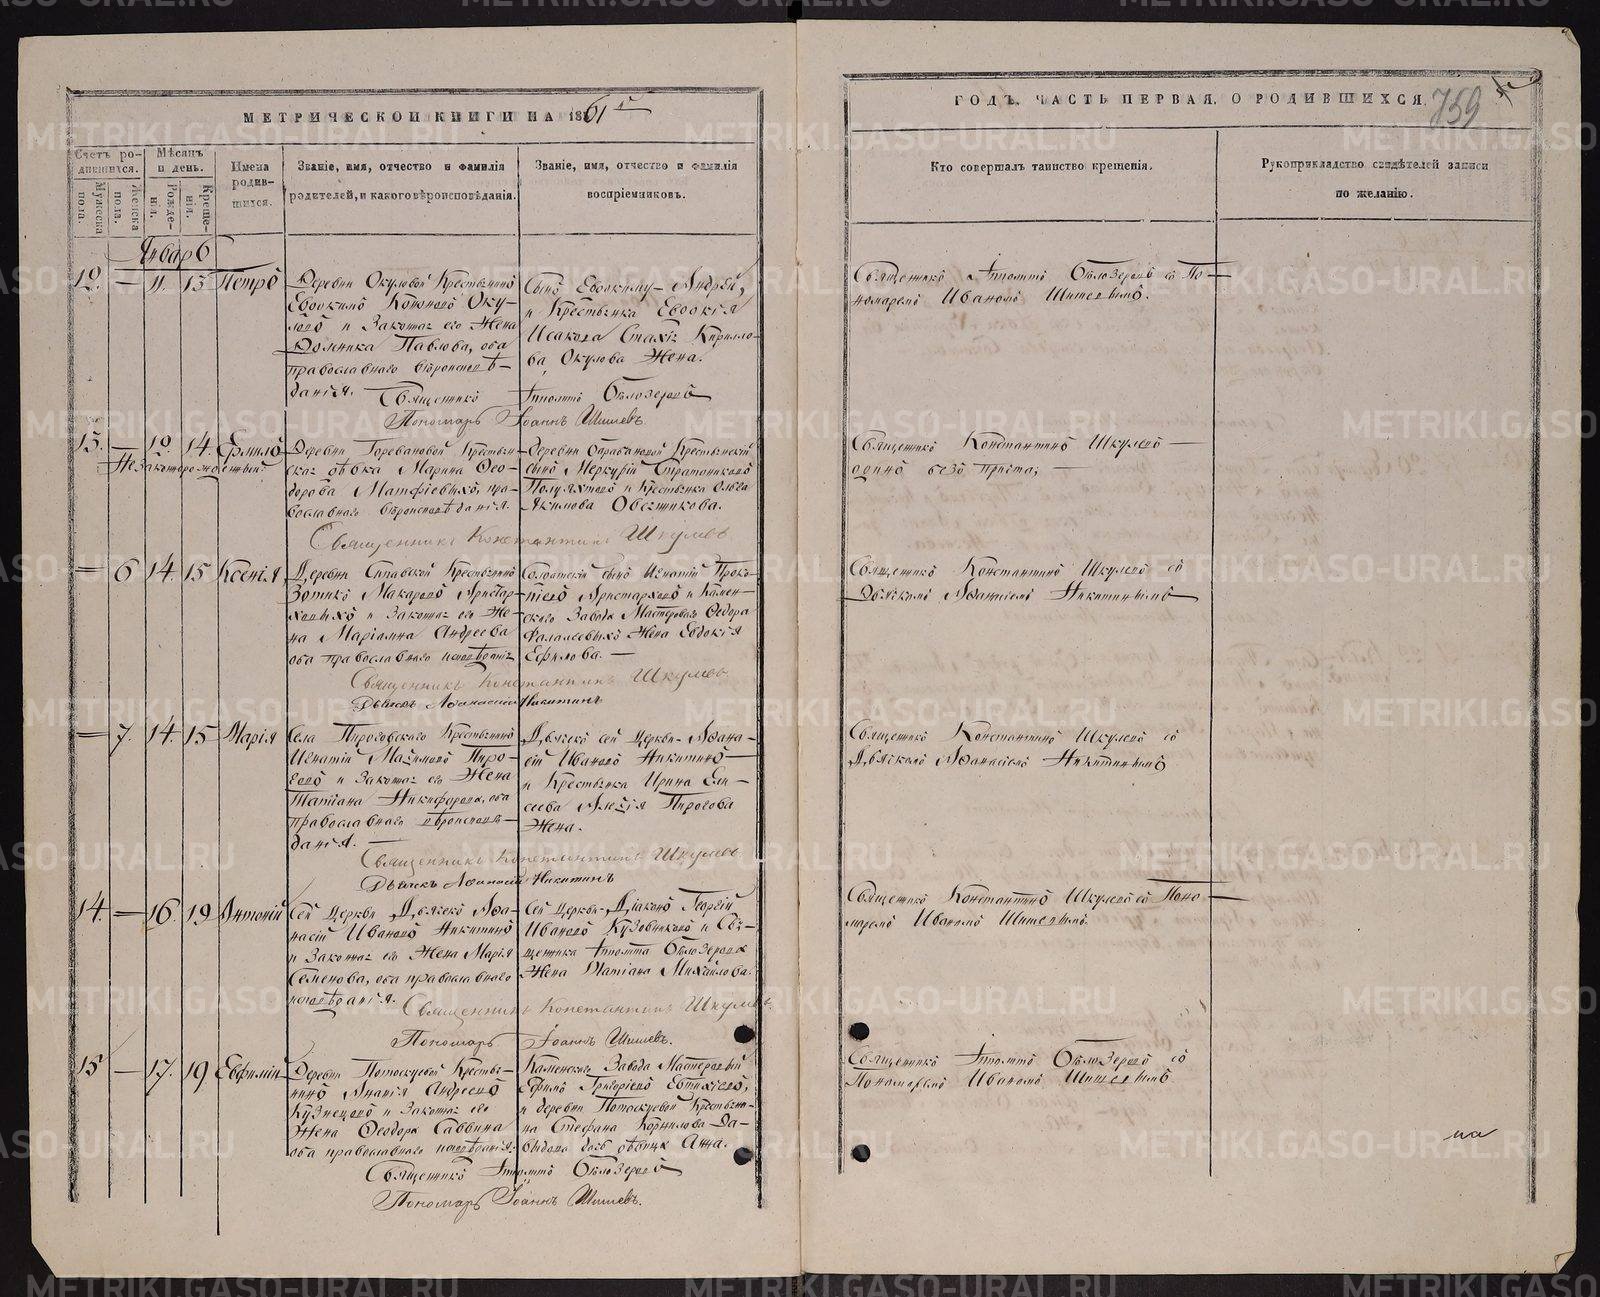 МЕТРИЧЕСКОЙ КНИГИ НА 1861 г
Счетъ родившихся.
Мужеска пола.
Женска пола.
Мѣсяцъ и день.
Рожденія.
Крещенія.
Имена родившихся.
Званіе, имя, отчество и фамилія
родителей, и какого вѣроисповѣданія.
Званіе, имя, отчество и фамилія
воспріемниковъ.
Январь
12. — 11. 13 Петръ
Деревни Окуловой Крестьянинъ
Евдокимъ Окуловъ и Законная его Жена
Павлова, оба
православнаго вѣроисповѣданія.
Сынъ Евдокиму Андрей,
и Крестьянка Евдокія
Исакова Кириллова Окулова Жена.
Священникъ Бѣлозеровъ
Пономарь Іоаннъ Шишевъ.
13. — 12. 14.
Незаконнорожденный
Деревни Крестьянская дѣвка Марина Ѳеодорова
православнаго вѣроисповѣданія.
Меркурій
и Крестьянка Ольга
Якимова Овсянникова.
Священникъ Константинъ Шкулевъ
— 6 14. 15 Ксенія
Деревни Крестьянинъ
Зотикъ Макаровъ Аристарховыхъ и Законная его Жена Маріамна Андреева
оба православнаго исповѣданія
Солдатскій сынъ Игнатій
Аристарховъ и Каменского Завода Мастероваго Ѳедора
Жена Евдокія
Ефимова. —
Священникъ Константинъ Шкулевъ
Дьячекъ Аѳанасій Никитинъ
— 7. 14. 15 Марія
Села Пироговскаго Крестьянинъ
Игнатій Максимовъ Пироговъ и Законная его Жена
Татіана Никифорова, оба
православнаго вѣроисповѣданія. —
Дьячекъ сей Церкви Аѳанасій Ивановъ Никитинъ
и Крестьянка Ирина Елисеева Алексія Пирогова
Жена.
Священникъ Константинъ Шкулевъ
Дьячекъ Аѳанасій Никитинъ
14. — 16. 19 Антоній
Сей Церкви Дьячекъ Аѳанасій Ивановъ Никитинъ
и Законная его Жена Марія
Семенова, оба православнаго
исповѣданія.
Сей Церкви Діаконъ Георгій
Ивановъ Кузовниковъ и Священника Бѣлозерова
Жена Татіана Михайлова.
Священникъ Константинъ Шкулевъ
Пономарь Іоаннъ Шишевъ.
15 — 17. 19 Евфимій
Деревни Потаскуевой Крестьянинъ Ананія Андреевъ
Кузнецовъ и Законная его
Жена Ѳеодора Саввина
оба православнаго исповѣданія.
Каменскаго Завода Мастеровый
Ефимъ Григорьевъ Евтихіевъ,
и деревни Потаскуевой Крестьянина Стефана Корнилова Давыдова дочь дѣвица Анна.
Священникъ Бѣлозеровъ
Пономарь Іоаннъ Шишевъ.
ГОДЪ, ЧАСТЬ ПЕРВАЯ, О РОДИВШИХСЯ.
759
Кто совершалъ таинство крещенія.
Рукоприкладство свидѣтелей записи
по желанію.
Священникъ Бѣлозеровъ съ Пономаремъ Иваномъ Шишевымъ.
Священникъ Константинъ Шкулевъ —
одинъ безъ причта; —
Священникъ Константинъ Шкулевъ съ
Дьячкомъ Аѳанасіемъ Никитинымъ
Священникъ Константинъ Шкулевъ съ
Дьячкомъ Аѳанасіемъ Никитинымъ
Священникъ Константинъ Шкулевъ съ Пономаремъ Иваномъ Шишевымъ.
Священникъ Бѣлозеровъ съ
Пономаремъ Иваномъ Шишевымъ
на
METRIKI.GASO-URAL.RU